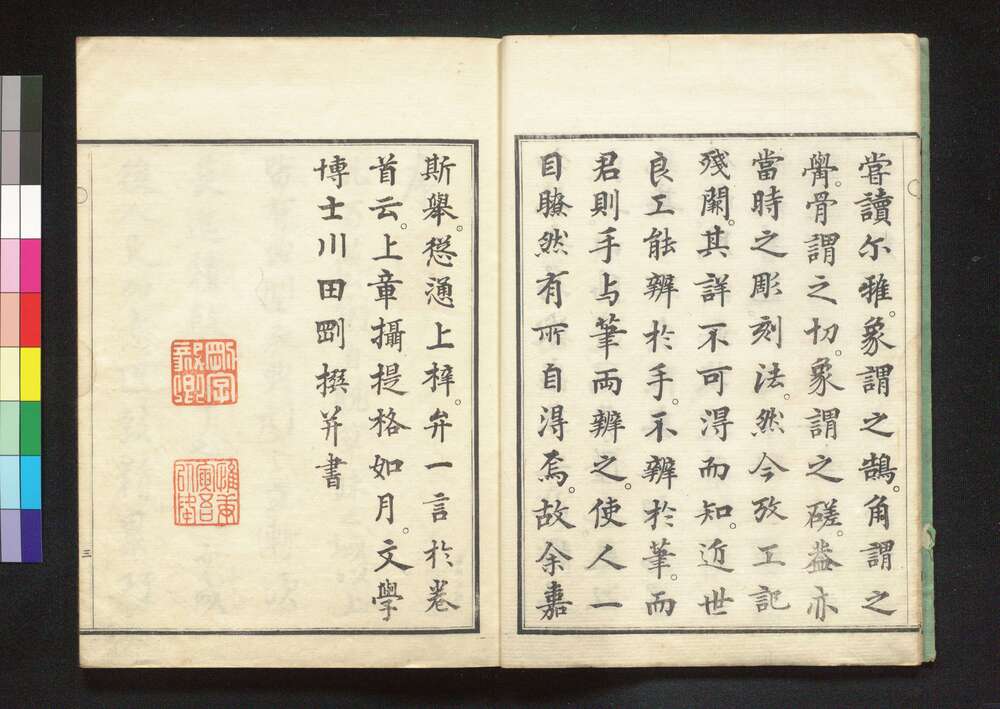 嘗讀尓雅。象謂之鵠。角謂之
觷。骨謂之切。象謂之磋。蓋亦
當時之彫刻法。然今攷工記
殘闕。其詳不可得而知。近世
良工能辨於手。不辨於筆。而
君則手与筆兩辨之。使人一
目瞭然有所自得焉。故余嘉
斯舉。慫慂上梓。弁一言於卷
首云。上章攝提格如月。文學
博士川田剛撰并書
剛字毅卿
惟庚寅吾以降
三